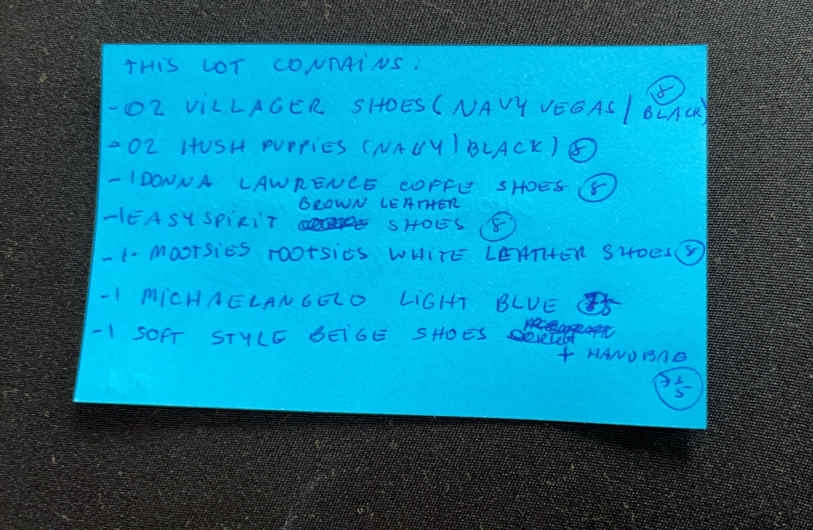 THIS LOT CONTAINS:
-02 VILLAGER SHOES (NAVY VEGAS / BLACK) 8
-02 HUSH PUPPIES (NAVY | BLACK) 8
-1 DONNA LAWRENCE COFFE SHOES 8
BROWN LEATHER
-1 EASY SPIRIT SHOES 8
-1- MOOTSIES TOOTSIES WHITE LEATHER SHOES 8
-1 MICHAELANGELO LIGHT BLUE
-1 SOFT STYLE BEIGE SHOES
+ HANDBAG